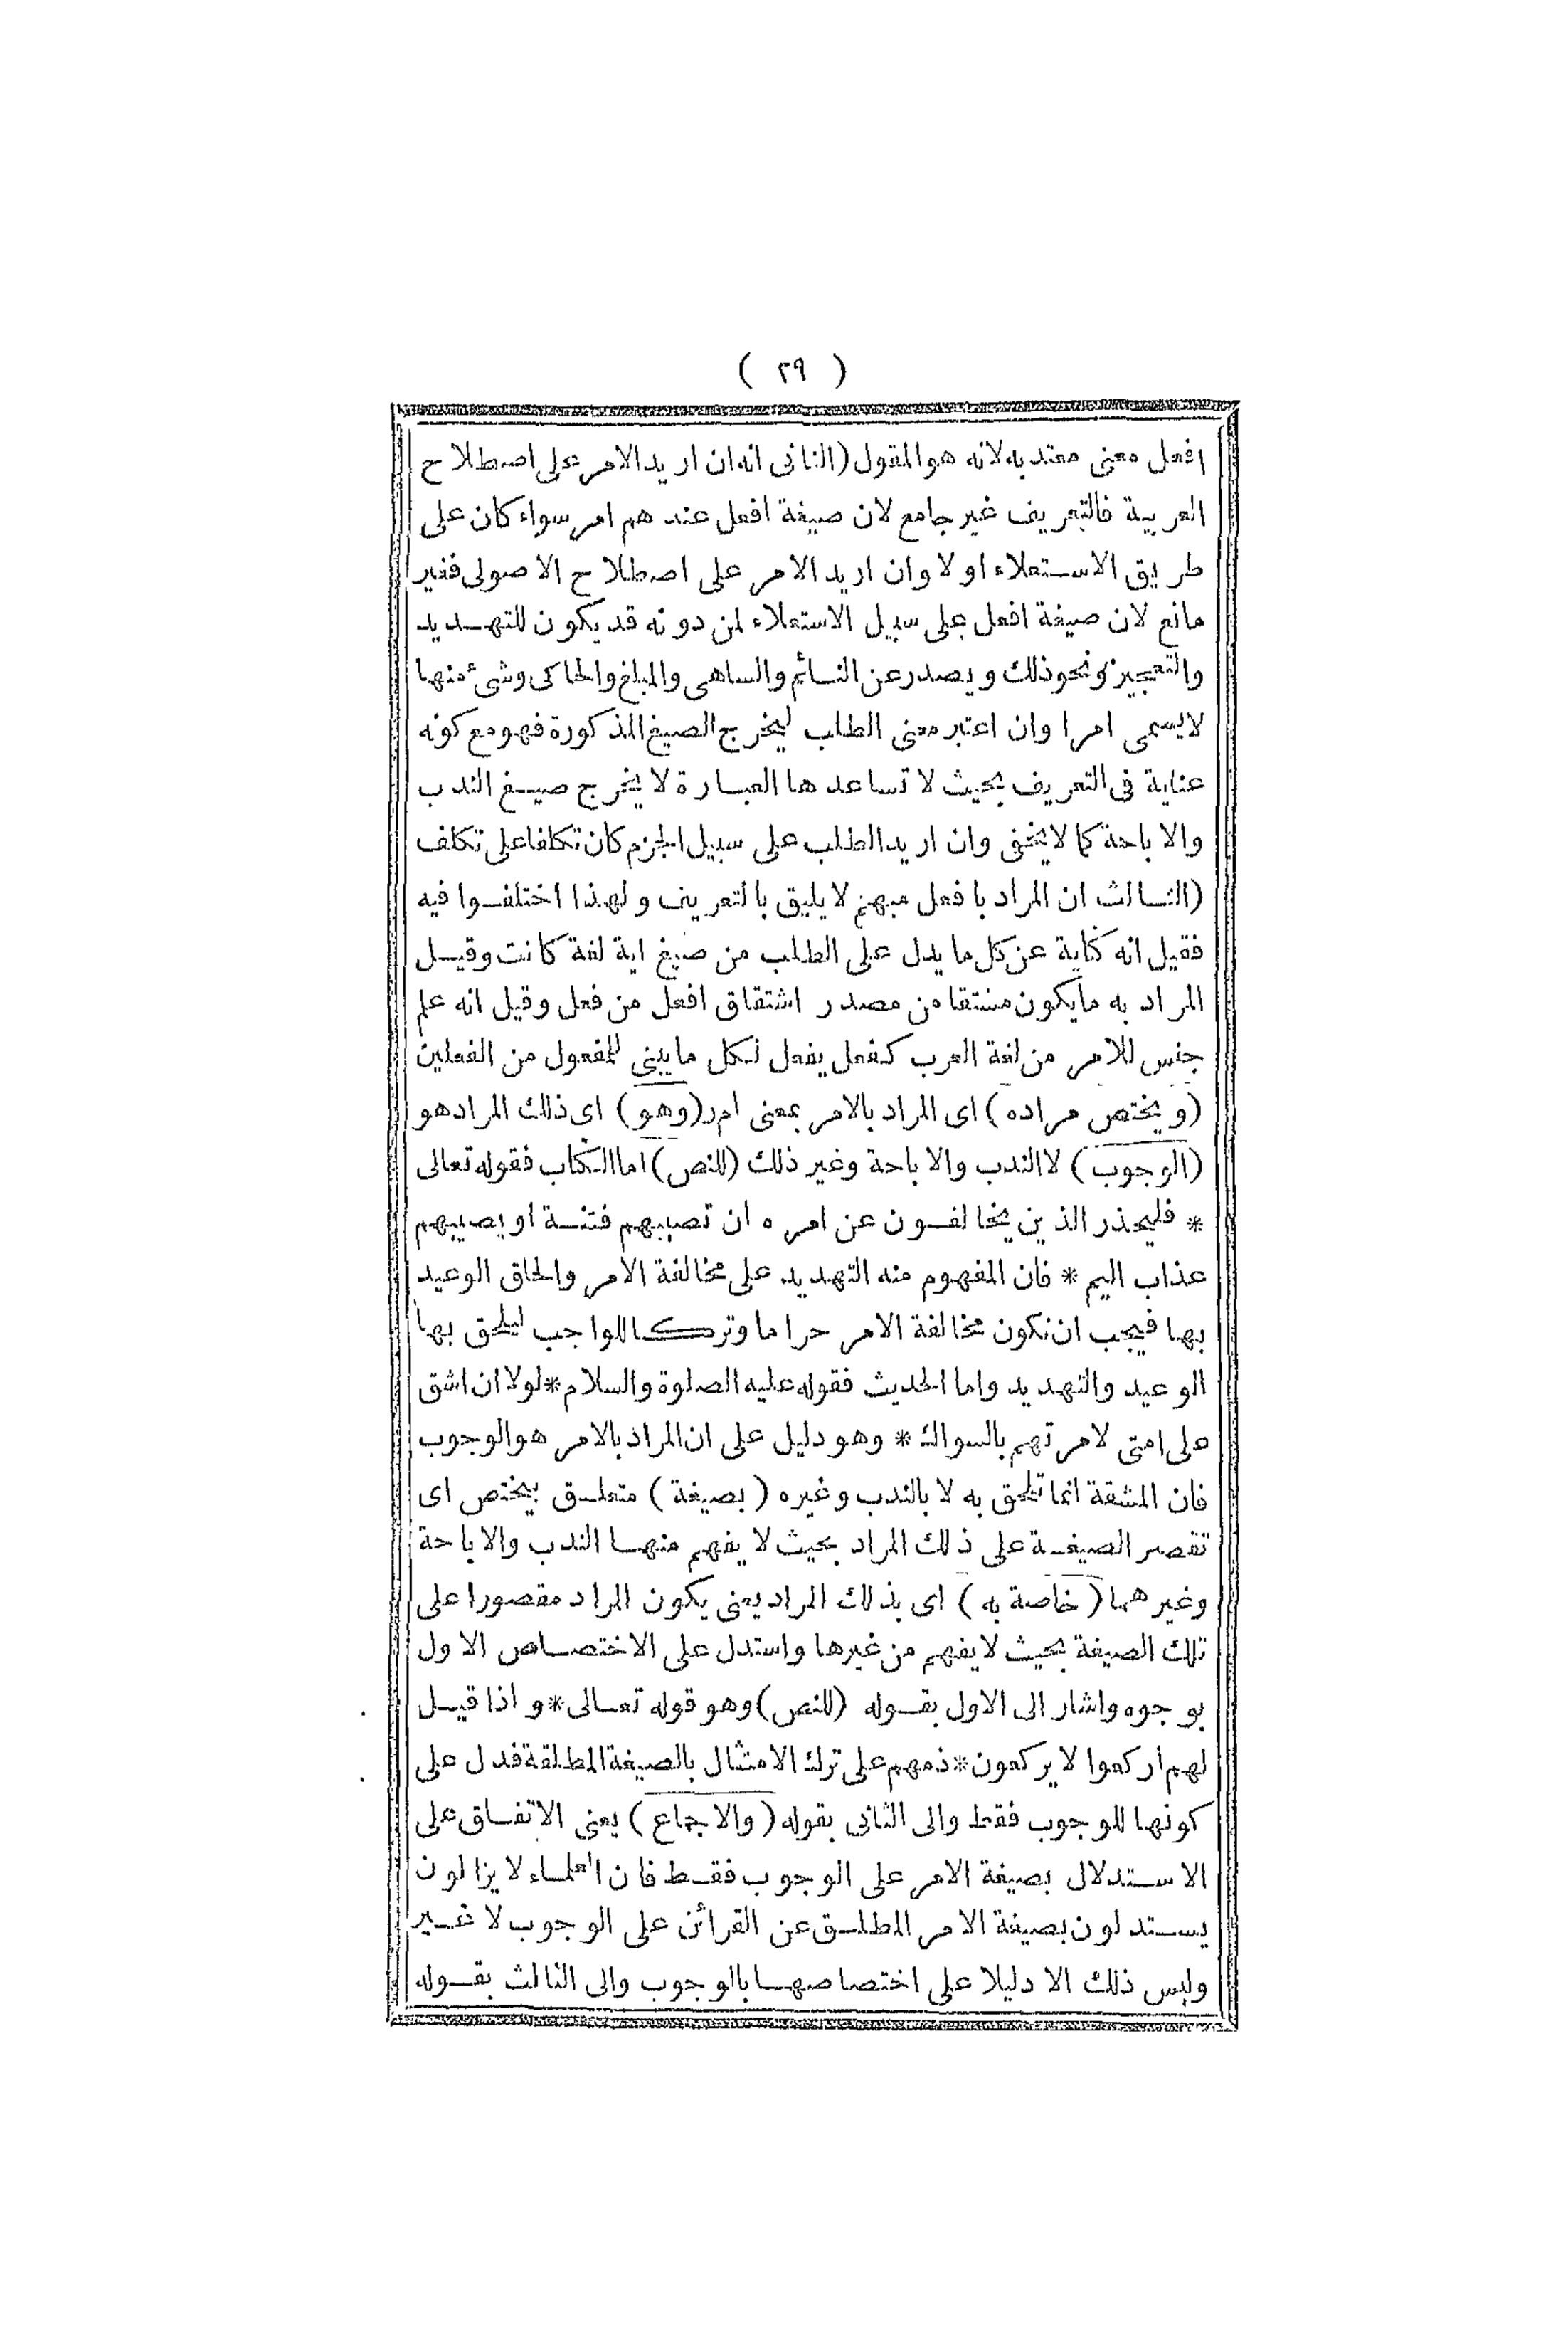 ( ٢٩ )
افعل معنى معتد به لانه هو المقول (الثانى انه ان اريد الامر على اصطلاح
العربية فالتعريف غير جامع لان صيغة افعل عندهم امر سواء كان على
طريق الاستعلاء او لا وان اريد الامر على اصطلاح الاصولى فغير
مانع لان صيغة افعل على سبيل الاستعلاء لمن دونه قد يكون للتهديد
والتعجيز ونحو ذلك ويصدر عن النائم والساهى والمبلغ والحاكى وشئ منها
لايسمى امرا وان اعتبر معنى الطلب ليخرج الصيغ المذكورة فهو مع كونه
عناية فى التعريف بحيث لا تساعدها العبارة لا يخرج صيغ الندب
والاباحة كما لايخفى وان اريد الطلب على سبيل الجزم كان تكلفا على تكلف
(الثالث ان المراد بافعل مبهم لا يليق بالتعريف ولهذا اختلفوا فيه
فقيل انه كناية عن كل ما يدل على الطلب من صيغ اية لغة كانت وقيل
المراد به مايكون مشتقا من مصدر اشتقاق افعل من فعل وقيل انه علم
جنس للامر من لغة العرب كفعل يفعل لكل ما يبنى للمفعول من الفعلين
(ويختص مراده) اى المراد بالامر بمعنى امر (وهو) اى ذلك المراد هو
(الوجوب) لا الندب والاباحة وغير ذلك (للنص) اما الكتاب فقوله تعالى
* فليحذر الذين يخالفون عن امره ان تصيبهم فتنة او يصيبهم
عذاب اليم * فان المفهوم منه التهديد على مخالفة الامر والحاق الوعيد
بها فيجب ان تكون مخالفة الامر حراما وتركا للواجب ليلحق بها
الوعيد والتهديد واما الحديث فقوله عليه الصلوة والسلام * لولا ان اشق
على امتى لامرتهم بالسواك * وهو دليل على ان المراد بالامر هو الوجوب
فان المشقة انما تلحق به لا بالندب وغيره (بصيغة) متعلق بيختص اى
تقصر الصيغة على ذلك المراد بحيث لا يفهم منها الندب والاباحة
وغيرهما (خاصة به) اى بذلك المراد يعنى يكون المراد مقصورا على
تلك الصيغة بحيث لا يفهم من غيرها واستدل على الاختصاص الاول
بوجوه واشار الى الاول بقوله (للنص) وهو قوله تعالى * واذا قيل
لهم اركعوا لا يركعون * ذمهم على ترك الامتثال بالصيغة المطلقة فدل على
كونها للوجوب فقط والى الثانى بقوله (والاجماع) يعنى الاتفاق على
الاستدلال بصيغة الامر على الوجوب فقط فان العلماء لا يزالون
يستدلون بصيغة الامر المطلق عن القرائن على الوجوب لا غير
وليس ذلك الا دليلا على اختصاصها بالوجوب والى الثالث بقوله